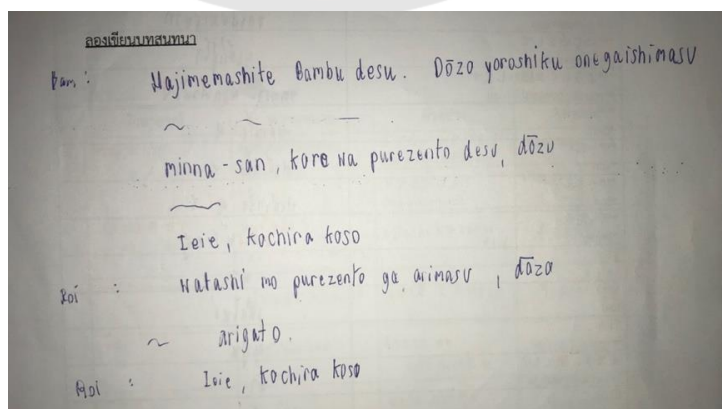 ลองเขียนบทสนทนา
Bam : Hajimemashite Bambu desu. Dōzo yoroshiku onegaishimasu
minna-san, kore wa purezento desu, dōzo
Ieie, kochira koso
Roi : Watashi mo purezento ga arimasu, dōzo
~ arigato.
Roi : Ieie, kochira koso